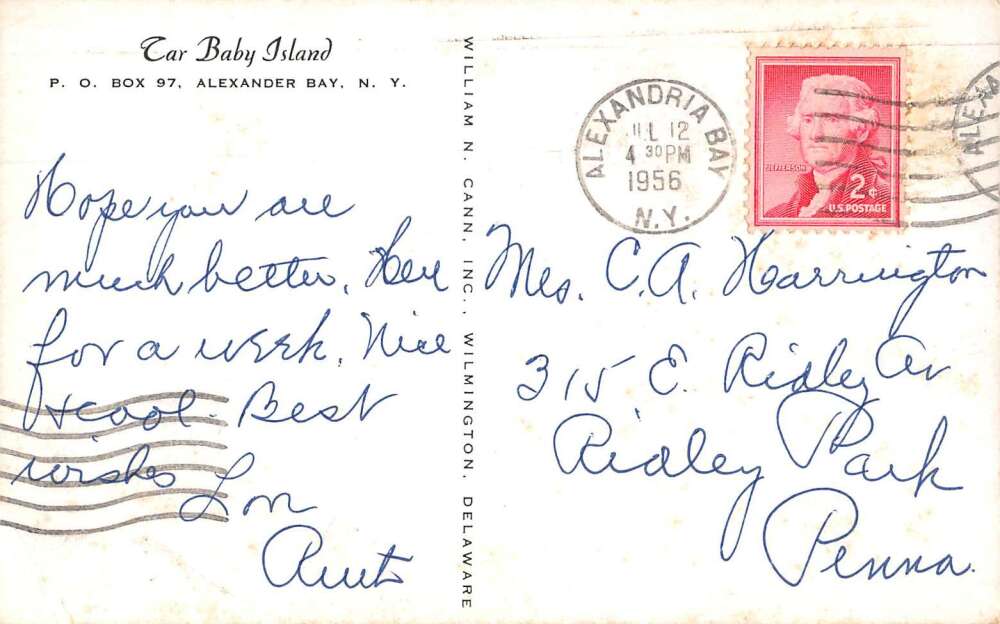 Tar Baby Island
P. O. BOX 97, ALEXANDER BAY, N. Y.
Hope you are
much better. Here
for a week. Nice
& cool. Best
wishes
WILLIAM N. CANN, INC., WILMINGTON, DELAWARE
ALEXANDRIA BAY
JUL 12
4 30 PM
1956
N.Y.
JEFFERSON
2¢
U.S. POSTAGE
ALEXA
Mrs. C.A. Harrington
315 E. Ridley Av
Ridley Park
Penna.